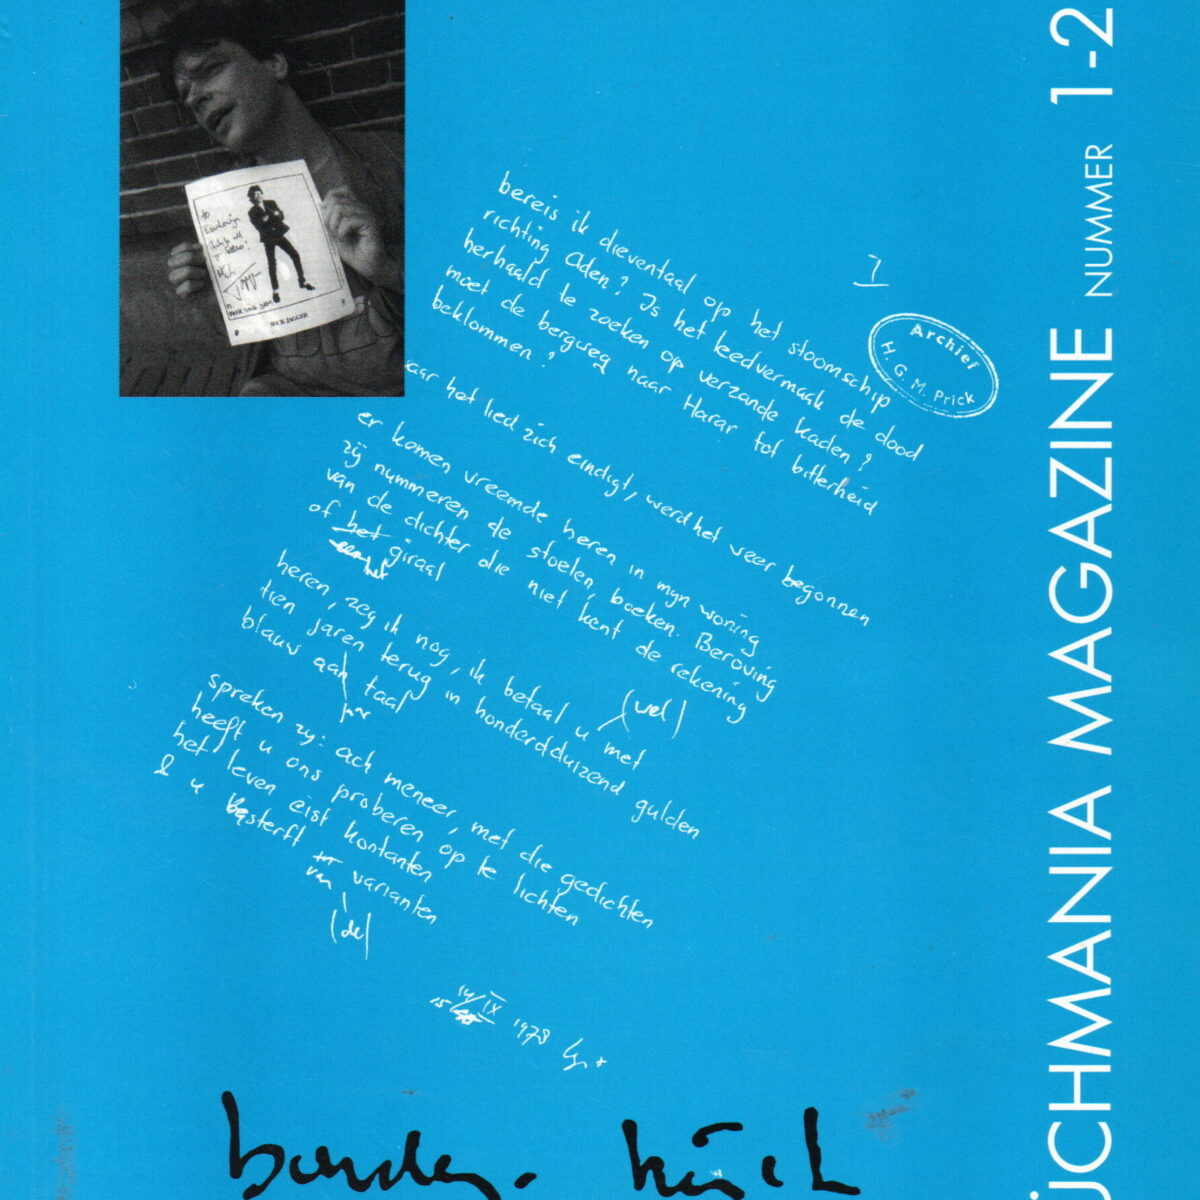 to
Boudewijn
MICK JAGGER
1
Archief
H. G. M. Prick
bereis ik dieventaal op het stoomschip
richting Aden? Is het leedvermaak de dood
herhaald te zoeken op verzande kaden?
moet de bergweg naar Harar tot bitterheid
beklommen?
aar het lied zich eindigt, werd het weer begonnen
er komen vreemde heren in mijn woning
zij nummeren de stoelen, boeken. Beroving
van de dichter die niet kent de rekening
of het giraal
een het
heren, zeg ik nog, ik betaal u met
(wel)
tien jaren terug in honderdduizend gulden
blauw aan taal
par
spreken zij: ach meneer, met die gedichten
heeft u ons proberen op te lichten
het leven eist kontanten
& u besterft varianten
van
(de)
14/IX 1978
15
JCHMANIA MAGAZINE NUMMER 1-2